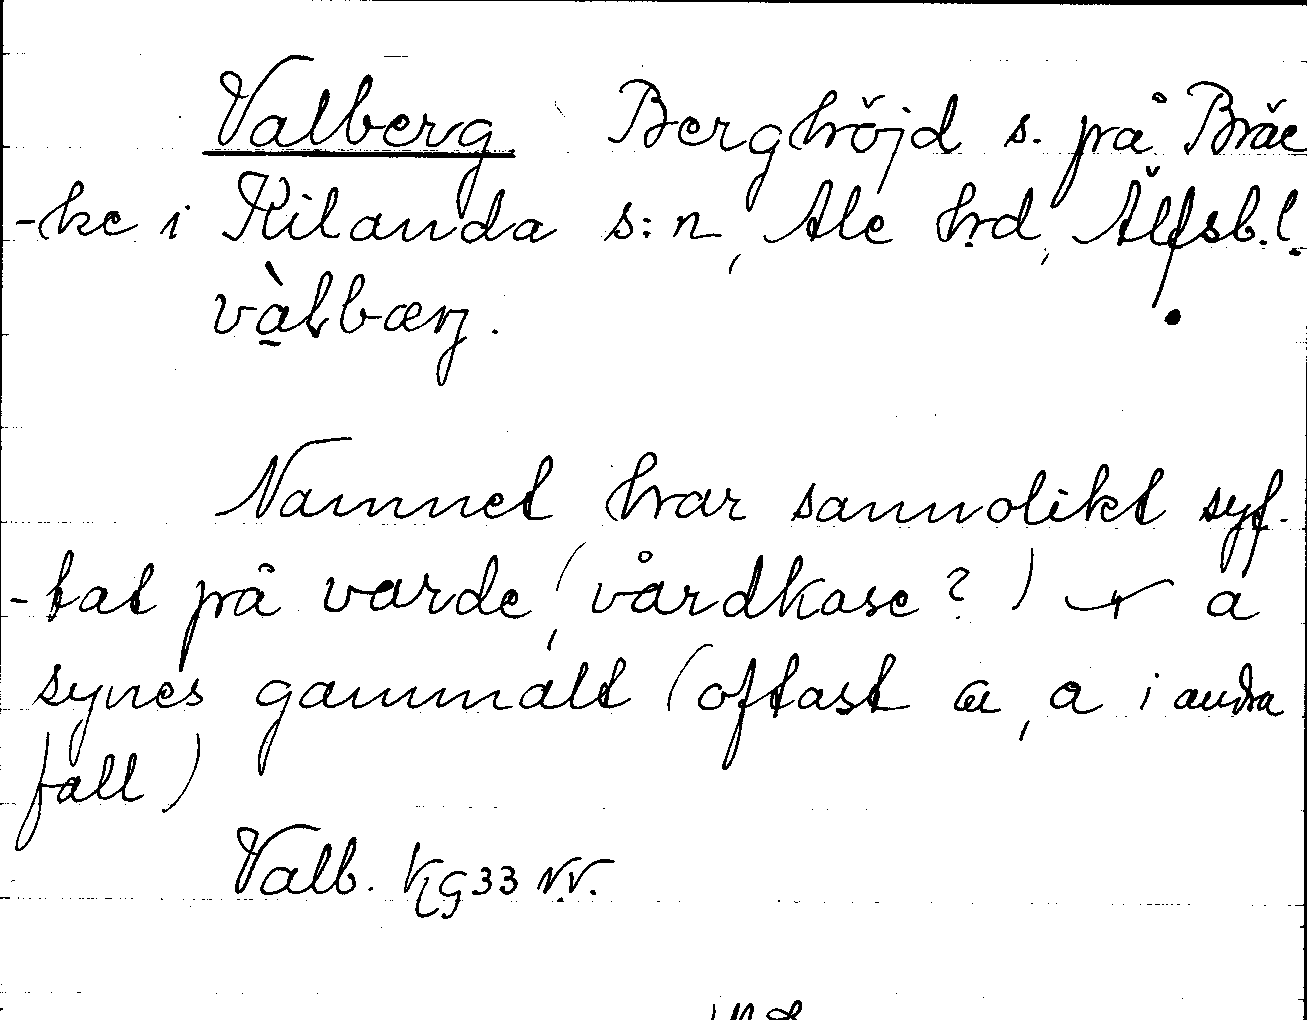 Valberg. Berghöjd s. på Bräc
-ke i Kilanda s:n, Ale hd, Älfsb.l.
Namnet har sannolikt syf-
-tat på varde, (vårdkase?) a
synes gammalt (oftast a, a i andra
fall)
Valb. Kg33 N.V.